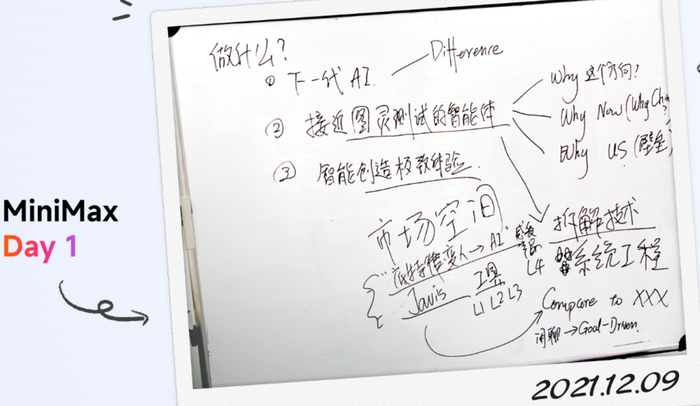 做什么?
① 下一代 AI. Difference
② 接近图灵测试的智能体
Why 这个方向?
Why Now (Why
Why US (壁垒
③ 智能创造极致体验.
市场空间
拆解技术
系统工程
AI"
L4
Javis 工具
L1 L2 L3
Compare to XXX
闲聊→Goal-Driven
MiniMax
Day 1
2021.12.09